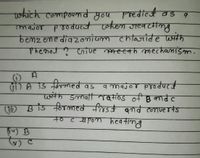 which compound you predict as a
major product when reacting
benzenediazonium chloride with
Phenol ? Give mechanism.
(i) A
(ii) A is formed as a major product
with small ratios of B and C
(iii) B is formed first and converts
to C upon heating
(iv) B
(v) C